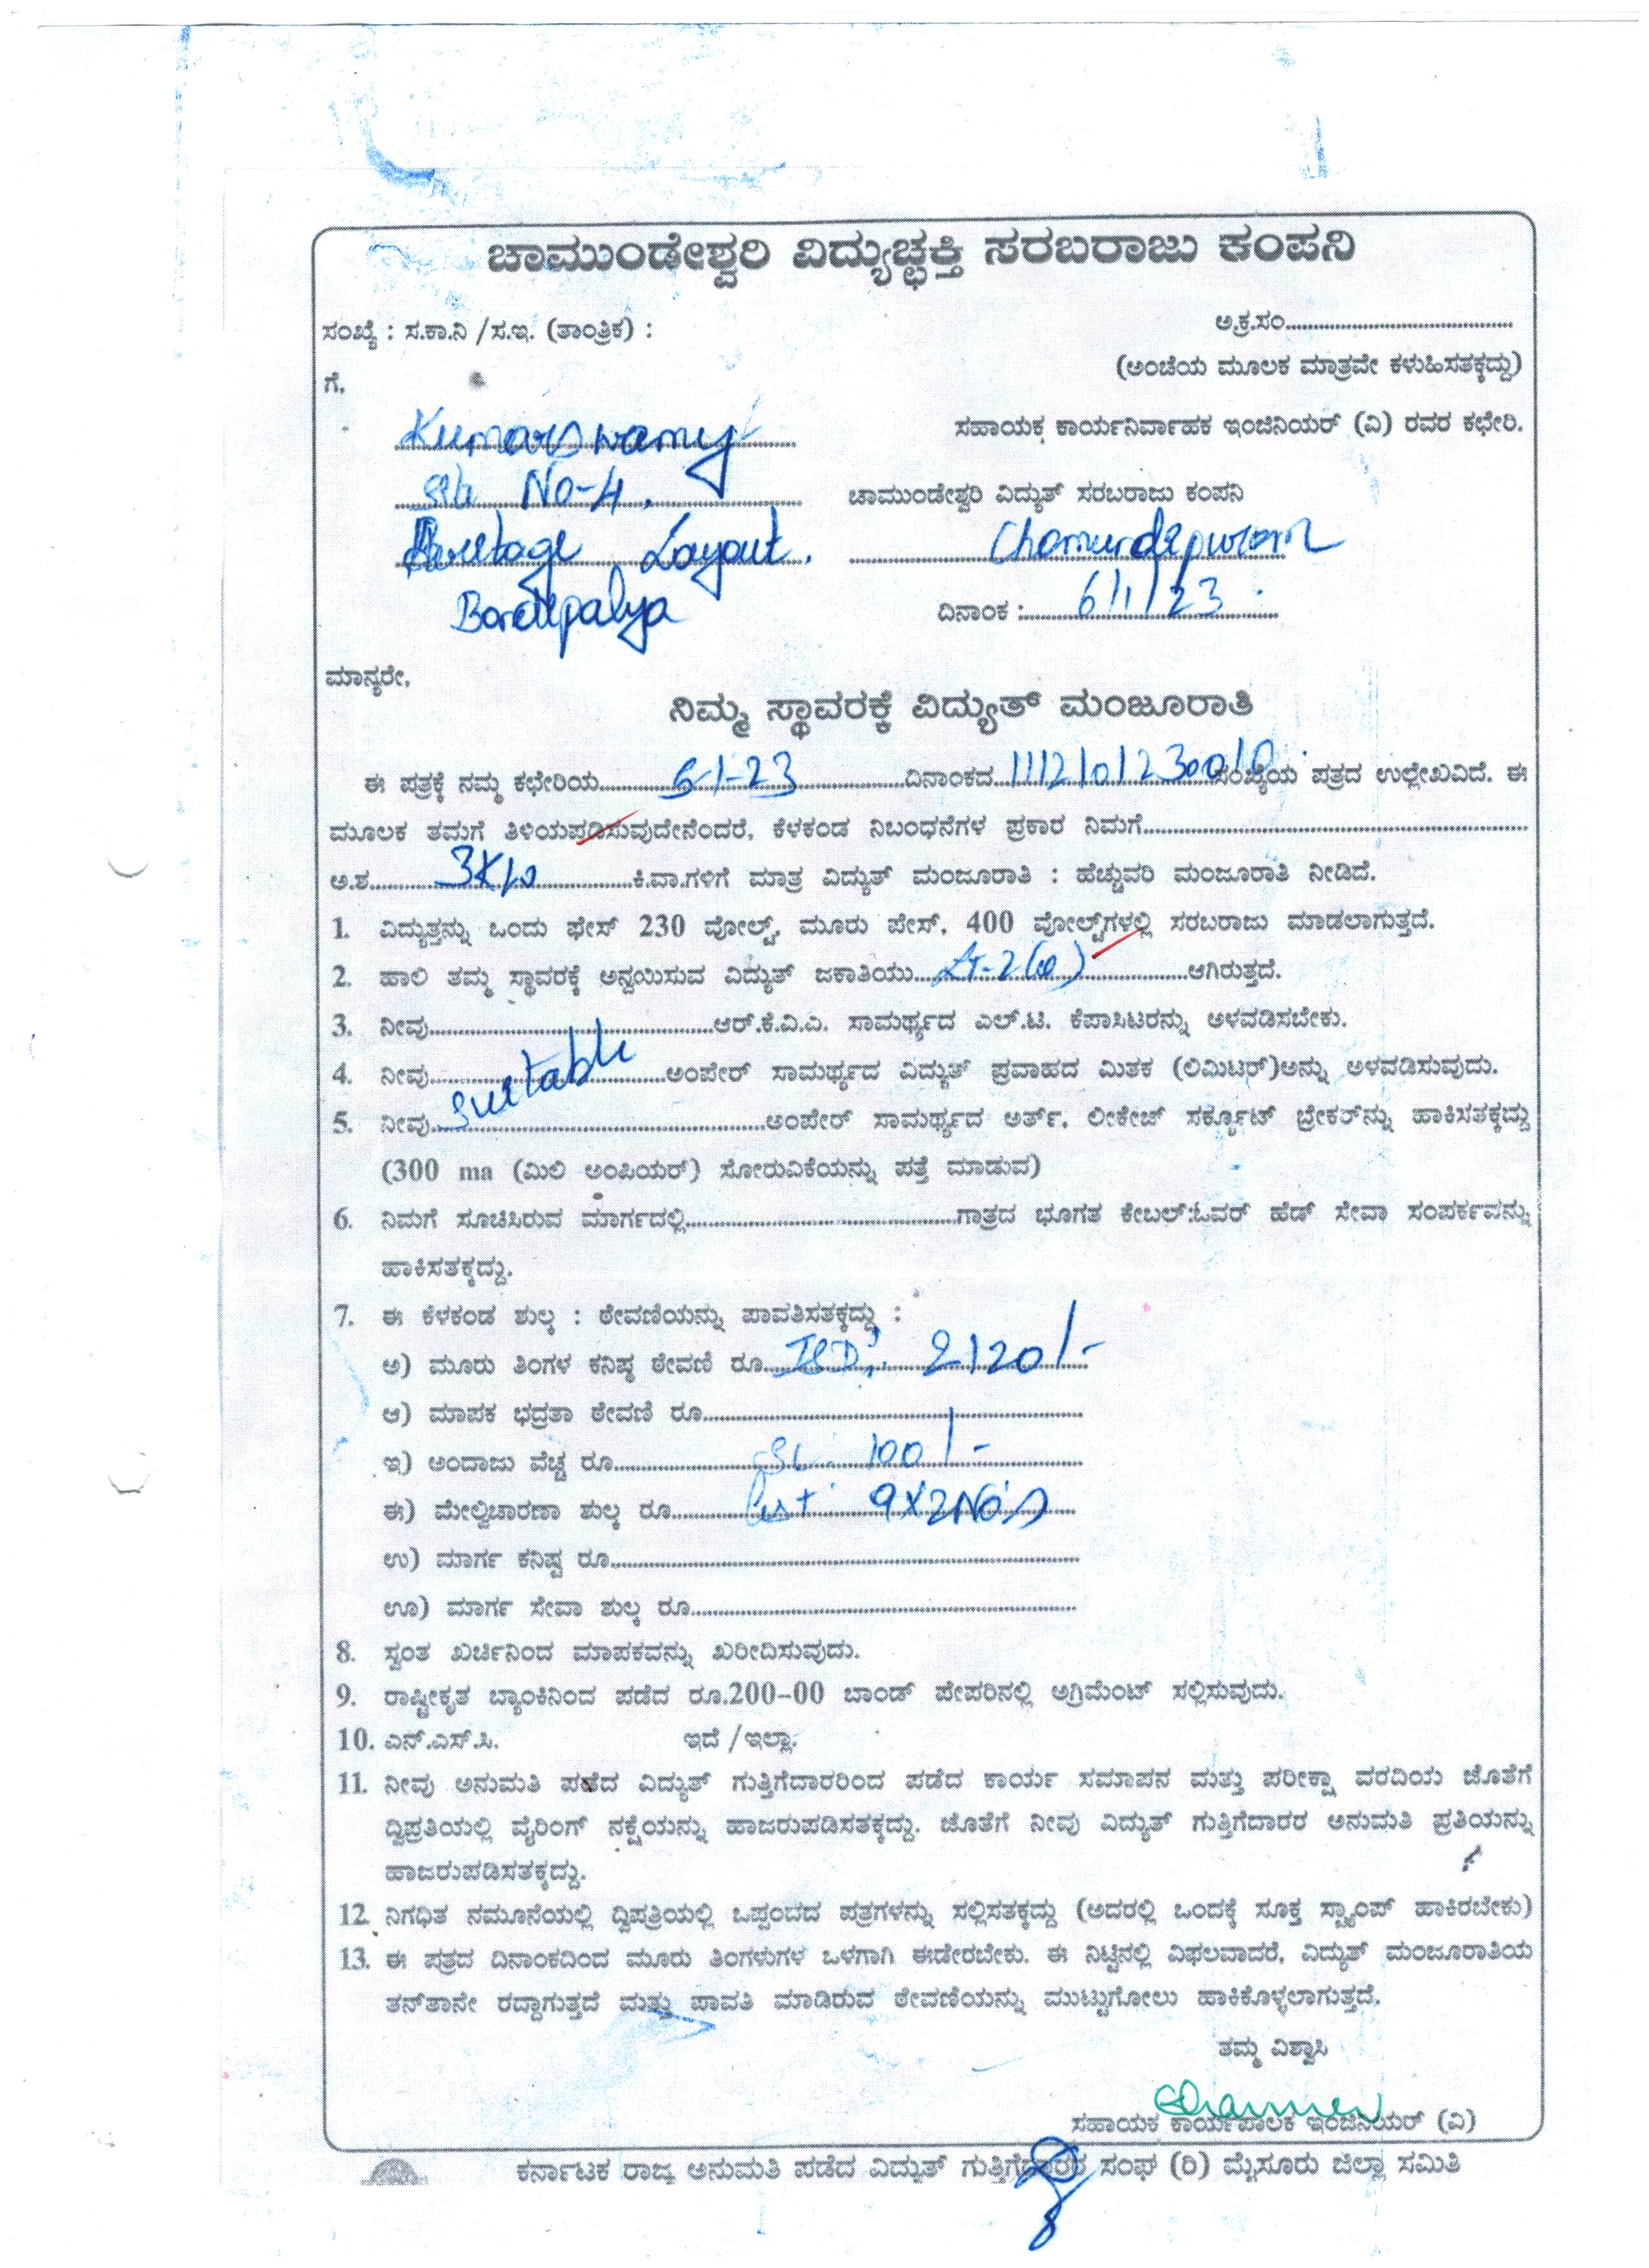 ಚಾಮುಂಡೇಶ್ವರಿ ವಿದ್ಯುಚ್ಛಕ್ತಿ ಸರಬರಾಜು ಕಂಪನಿ
ಸಂಖ್ಯೆ : ಸ.ಕಾ.ನಿ /ಸ.ಇ. (ತಾಂತ್ರಿಕ) :
ಅ.ಕ್ರ.ಸಂ....................
(ಅಂಚೆಯ ಮೂಲಕ ಮಾತ್ರವೇ ಕಳುಹಿಸತಕ್ಕದ್ದು)
ಗೆ,
Kumarswamy
ಸಹಾಯಕ ಕಾರ್ಯನಿರ್ವಾಹಕ ಇಂಜಿನಿಯರ್ (ವಿ) ರವರ ಕಛೇರಿ.
No-4,
ಚಾಮುಂಡೇಶ್ವರಿ ವಿದ್ಯುತ್ ಸರಬರಾಜು ಕಂಪನಿ
Layout,
Chamundipuram
ದಿನಾಂಕ : 6/1/23
ಮಾನ್ಯರೇ,
ನಿಮ್ಮ ಸ್ಥಾವರಕ್ಕೆ ವಿದ್ಯುತ್ ಮಂಜೂರಾತಿ
ಈ ಪತ್ರಕ್ಕೆ ನಮ್ಮ ಕಛೇರಿಯ 6-1-23 ದಿನಾಂಕದ ಸಂಖ್ಯೆಯ ಪತ್ರದ ಉಲ್ಲೇಖವಿದೆ. ಈ
ಮೂಲಕ ತಮಗೆ ತಿಳಿಯಪಡಿಸುವುದೇನೆಂದರೆ, ಕೆಳಕಂಡ ನಿಬಂಧನೆಗಳ ಪ್ರಕಾರ ನಿಮಗೆ....................
ಅ.ಶ. ಕಿ.ವಾ.ಗಳಿಗೆ ಮಾತ್ರ ವಿದ್ಯುತ್ ಮಂಜೂರಾತಿ : ಹೆಚ್ಚುವರಿ ಮಂಜೂರಾತಿ ನೀಡಿದೆ.
1. ವಿದ್ಯುತ್ತನ್ನು ಒಂದು ಫೇಸ್ 230 ವೋಲ್ಟ್, ಮೂರು ಪೇಸ್, 400 ವೋಲ್ಟ್‌ಗಳಲ್ಲಿ ಸರಬರಾಜು ಮಾಡಲಾಗುತ್ತದೆ.
2. ಹಾಲಿ ತಮ್ಮ ಸ್ಥಾವರಕ್ಕೆ ಅನ್ವಯಿಸುವ ವಿದ್ಯುತ್ ಜಕಾತಿಯು ಆಗಿರುತ್ತದೆ.
3. ನೀವು....................ಆರ್.ಕೆ.ವಿ.ಎ. ಸಾಮರ್ಥ್ಯದ ಎಲ್.ಟಿ. ಕೆಪಾಸಿಟರನ್ನು ಅಳವಡಿಸಬೇಕು.
4. ನೀವು suitable ಅಂಪೇರ್ ಸಾಮರ್ಥ್ಯದ ವಿದ್ಯುತ್ ಪ್ರವಾಹದ ಮಿತಕ (ಲಿಮಿಟರ್)ಅನ್ನು ಅಳವಡಿಸುವುದು.
5. ನೀವು....................ಅಂಪೇರ್ ಸಾಮರ್ಥ್ಯದ ಅರ್ತ್, ಲೀಕೇಜ್ ಸರ್ಕ್ಯೂಟ್ ಬ್ರೇಕರ್‌ನ್ನು ಹಾಕಿಸತಕ್ಕದ್ದು
(300 ma (ಮಿಲಿ ಅಂಪಿಯರ್) ಸೋರುವಿಕೆಯನ್ನು ಪತ್ತೆ ಮಾಡುವ)
6. ನಿಮಗೆ ಸೂಚಿಸಿರುವ ಮಾರ್ಗದಲ್ಲಿ....................ಗಾತ್ರದ ಭೂಗತ ಕೇಬಲ್:ಓವರ್ ಹೆಡ್ ಸೇವಾ ಸಂಪರ್ಕವನ್ನು
ಹಾಕಿಸತಕ್ಕದ್ದು.
7. ಈ ಕೆಳಕಂಡ ಶುಲ್ಕ : ಠೇವಣಿಯನ್ನು ಪಾವತಿಸತಕ್ಕದ್ದು :
ಅ) ಮೂರು ತಿಂಗಳ ಕನಿಷ್ಠ ಠೇವಣಿ ರೂ. ISD: 2120/-
ಆ) ಮಾಪಕ ಭದ್ರತಾ ಠೇವಣಿ ರೂ....................
ಇ) ಅಂದಾಜು ವೆಚ್ಚ ರೂ. 100/-
ಈ) ಮೇಲ್ವಿಚಾರಣಾ ಶುಲ್ಕ ರೂ. 9X2No's
ಉ) ಮಾರ್ಗ ಕನಿಷ್ಟ ರೂ....................
ಊ) ಮಾರ್ಗ ಸೇವಾ ಶುಲ್ಕ ರೂ....................
8. ಸ್ವಂತ ಖರ್ಚಿನಿಂದ ಮಾಪಕವನ್ನು ಖರೀದಿಸುವುದು.
9. ರಾಷ್ಟ್ರೀಕೃತ ಬ್ಯಾಂಕಿನಿಂದ ಪಡೆದ ರೂ.200-00 ಬಾಂಡ್ ಪೇಪರಿನಲ್ಲಿ ಅಗ್ರಿಮೆಂಟ್ ಸಲ್ಲಿಸುವುದು.
10. ಎನ್.ಎಸ್.ಸಿ. ಇದೆ /ಇಲ್ಲಾ.
11. ನೀವು ಅನುಮತಿ ಪಡೆದ ವಿದ್ಯುತ್ ಗುತ್ತಿಗೆದಾರರಿಂದ ಪಡೆದ ಕಾರ್ಯ ಸಮಾಪನ ಮತ್ತು ಪರೀಕ್ಷಾ ವರದಿಯ ಜೊತೆಗೆ
ದ್ವಿಪ್ರತಿಯಲ್ಲಿ ವೈರಿಂಗ್ ನಕ್ಷೆಯನ್ನು ಹಾಜರುಪಡಿಸತಕ್ಕದ್ದು. ಜೊತೆಗೆ ನೀವು ವಿದ್ಯುತ್ ಗುತ್ತಿಗೆದಾರರ ಅನುಮತಿ ಪ್ರತಿಯನ್ನು
ಹಾಜರುಪಡಿಸತಕ್ಕದ್ದು.
12. ನಿಗಧಿತ ನಮೂನೆಯಲ್ಲಿ ದ್ವಿಪತ್ರಿಯಲ್ಲಿ ಒಪ್ಪಂದದ ಪತ್ರಗಳನ್ನು ಸಲ್ಲಿಸತಕ್ಕದ್ದು (ಅದರಲ್ಲಿ ಒಂದಕ್ಕೆ ಸೂಕ್ತ ಸ್ಟ್ಯಾಂಪ್ ಹಾಕಿರಬೇಕು)
13. ಈ ಪತ್ರದ ದಿನಾಂಕದಿಂದ ಮೂರು ತಿಂಗಳುಗಳ ಒಳಗಾಗಿ ಈಡೇರಬೇಕು. ಈ ನಿಟ್ಟಿನಲ್ಲಿ ವಿಫಲವಾದರೆ, ವಿದ್ಯುತ್ ಮಂಜೂರಾತಿಯ
ತನ್‌ತಾನೇ ರದ್ದಾಗುತ್ತದೆ ಮತ್ತು ಪಾವತಿ ಮಾಡಿರುವ ಠೇವಣಿಯನ್ನು ಮುಟ್ಟುಗೋಲು ಹಾಕಿಕೊಳ್ಳಲಾಗುತ್ತದೆ.
ತಮ್ಮ ವಿಶ್ವಾಸಿ
ಸಹಾಯಕ ಕಾರ್ಯಪಾಲಕ ಇಂಜಿನಿಯರ್ (ವಿ)
ಕರ್ನಾಟಕ ರಾಜ್ಯ ಅನುಮತಿ ಪಡೆದ ವಿದ್ಯುತ್ ಗುತ್ತಿಗೆದಾರರ ಸಂಘ (ರಿ) ಮೈಸೂರು ಜಿಲ್ಲಾ ಸಮಿತಿ